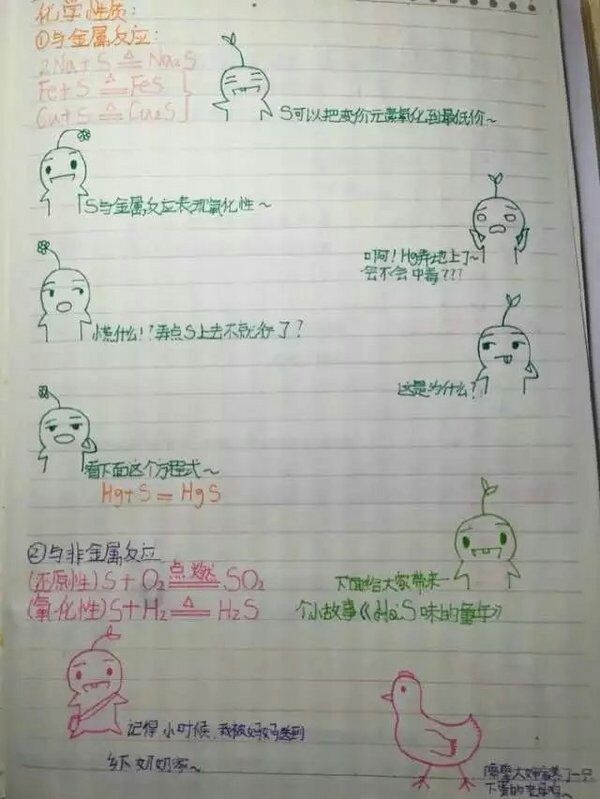 化学性质:
①与金属反应:
2Na+S △ Na₂S
Fe+S △ FeS
Cu+S △ Cu₂S
S可以把变价元素氧化到最低价~
S与金属反应表现氧化性~
啊!Hg弄地上了~
会不会中毒???
慌什么!?弄点S上去不就行了?
这是为什么?
看下面这个方程式~
Hg+S=HgS
②与非金属反应
(还原性)S+O₂ 点燃 SO₂
(氧化性)S+H₂ △ H₂S
下面给大家带来一
个小故事《H₂S味的童年》
记得小时候,我被妈妈送到
乡下奶奶家~
隔壁大婶家养了一只
下蛋的老母鸡~